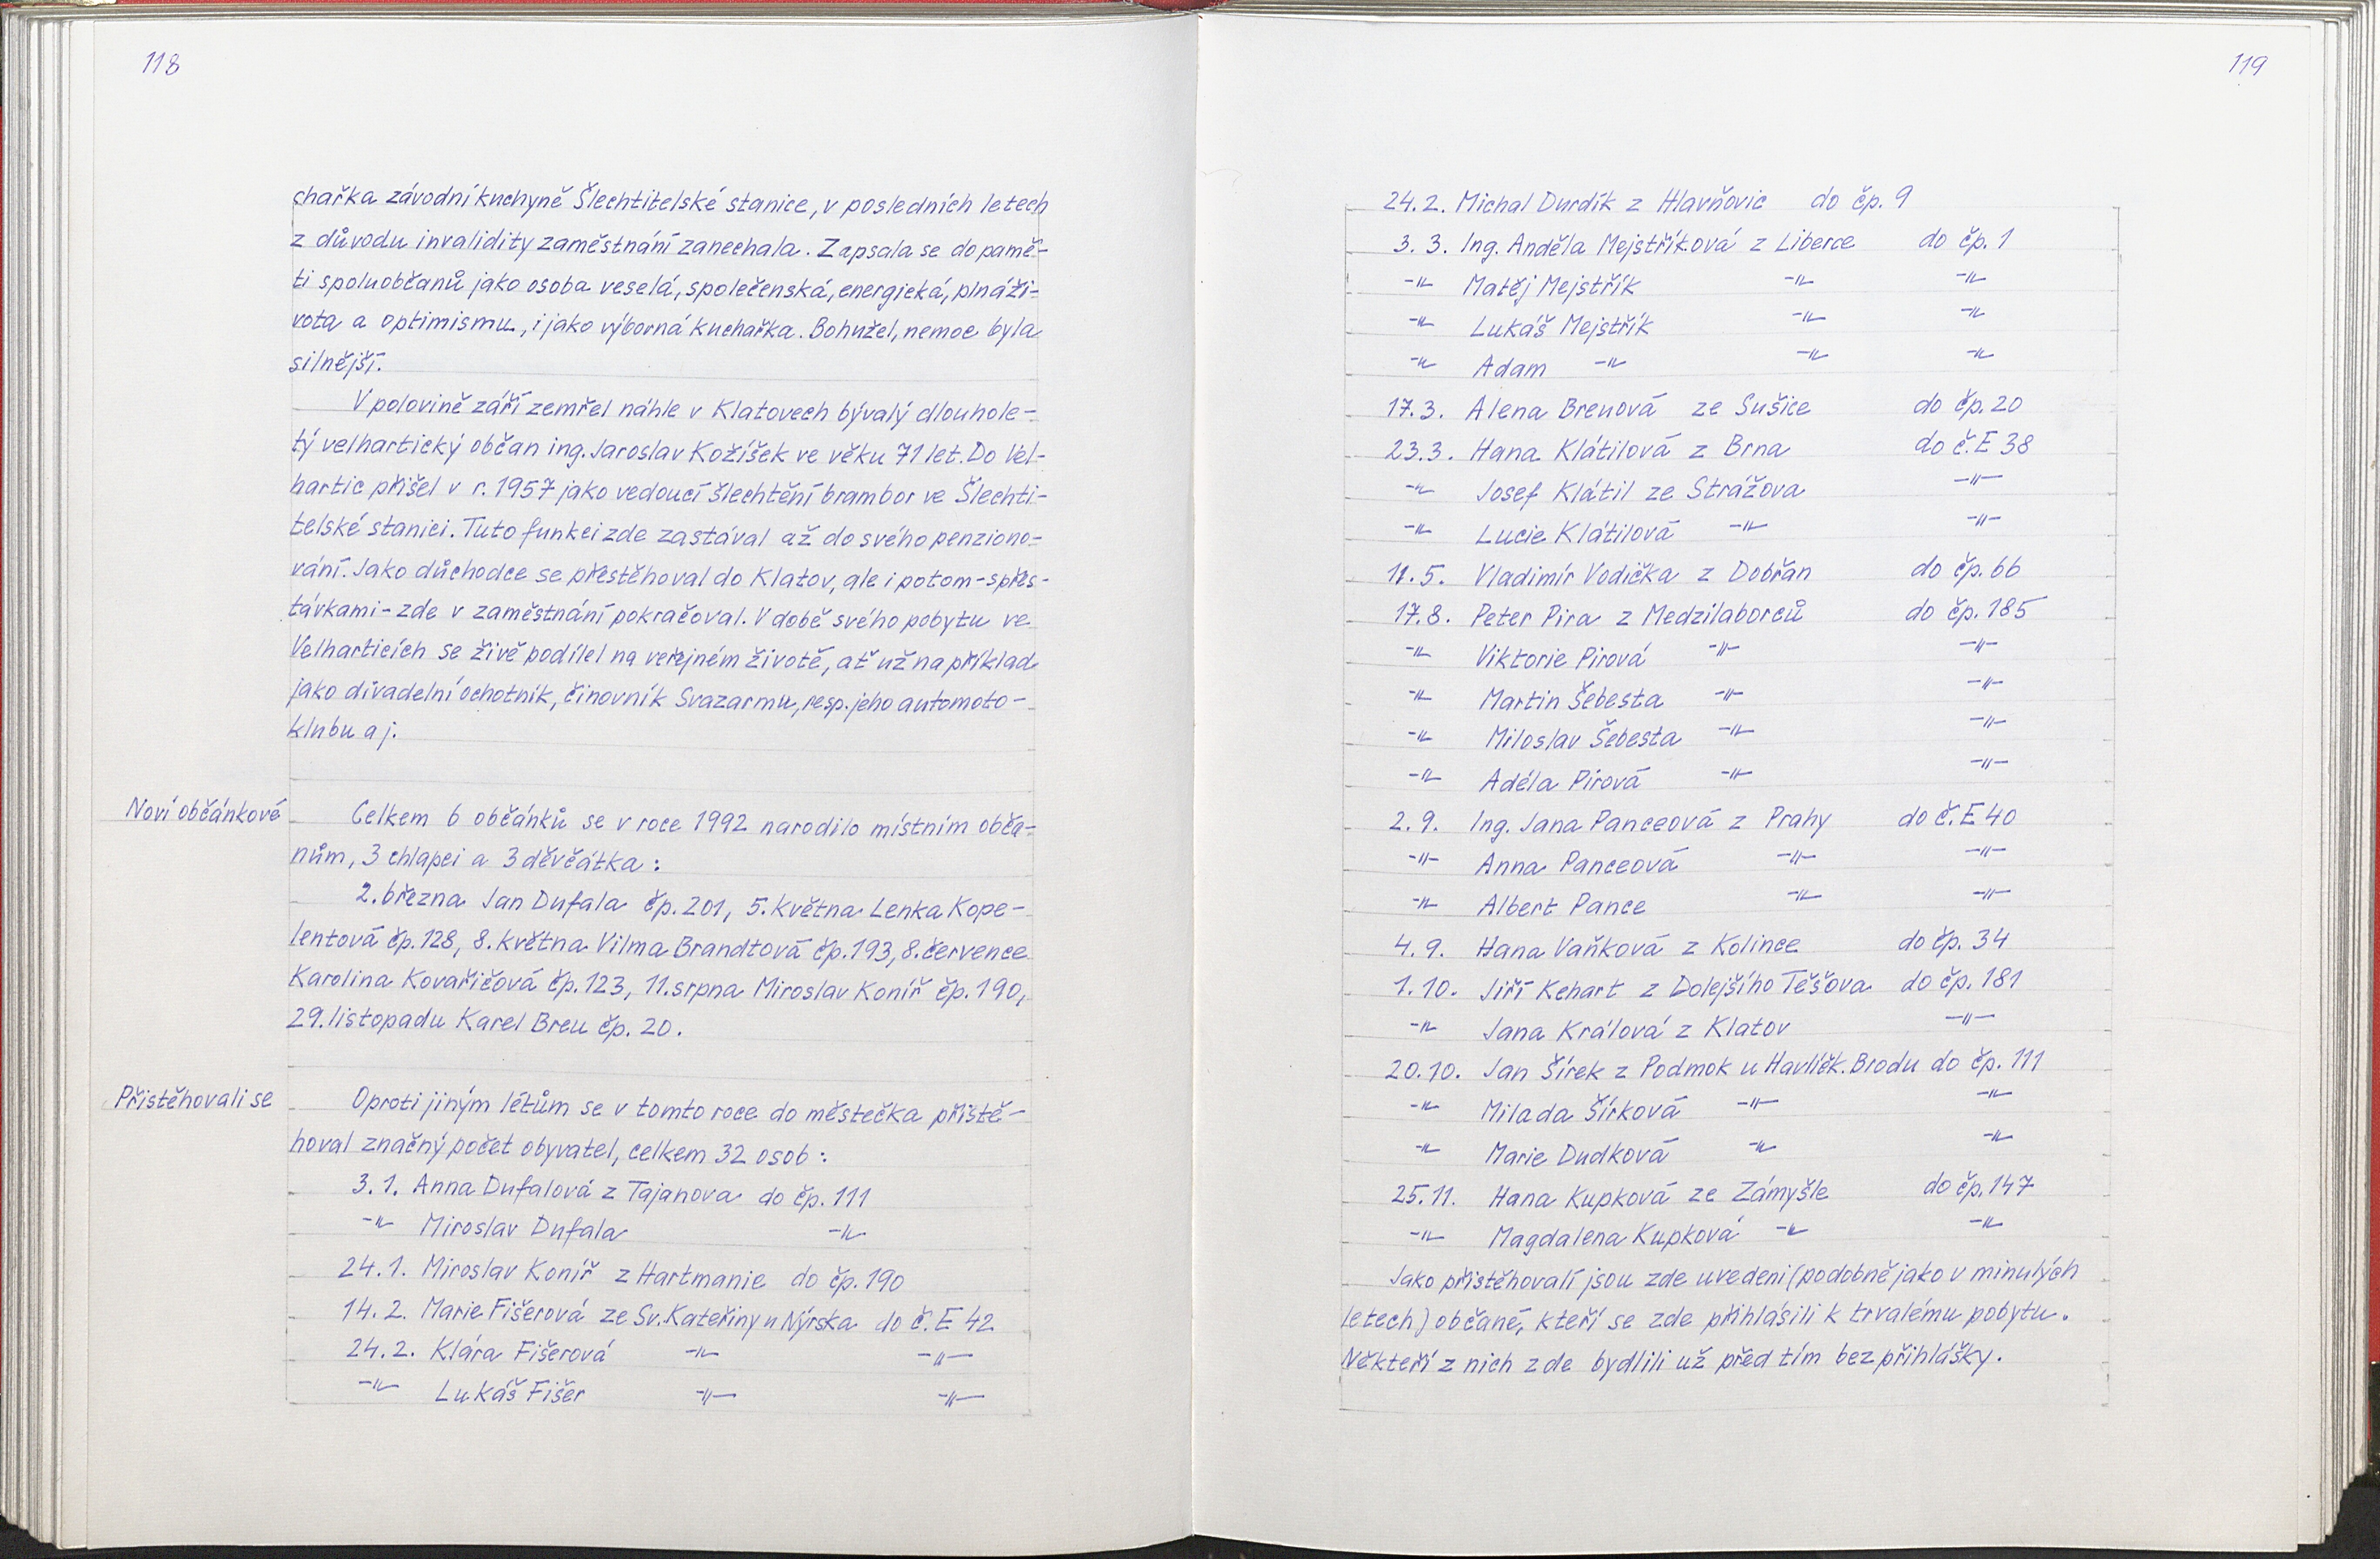 118
chařka závodní kuchyně Šlechtitelské stanice, v posledních letech
z důvodu invalidity zaměstnání zanechala. Zapsala se do pamě-
ti spoluobčanů jako osoba veselá, společenská, energická, plná ži-
vota a optimismu, i jako výborná kuchařka. Bohužel, nemoc byla
silnější.
V polovině září zemřel náhle v Klatovech bývalý dlouhole-
tý velhartický občan ing. Jaroslav Kožíšek ve věku 71 let. Do Vel-
hartic přišel v r. 1957 jako vedoucí šlechtění brambor ve Šlechti-
telské stanici. Tuto funkci zde zastával až do svého penziono-
vání. Jako důchodce se přestěhoval do Klatov, ale i potom - s přes-
távkami - zde v zaměstnání pokračoval. V době svého pobytu ve
Velharticích se živě podílel na veřejném životě, ať už na příklad
jako divadelní ochotník, činovník Svazarmu, resp. jeho automoto-
klubu aj.
Noví občánkové
Celkem 6 občánků se v roce 1992 narodilo místním obča-
nům, 3 chlapci a 3 děvčátka:
2. března Jan Dufala čp. 201, 5. května Lenka Kope-
lentová čp. 128, 8. května Vilma Brandtová čp. 193, 8. července
Karolina Kovaříčová čp. 123, 11. srpna Miroslav Koníř čp. 190,
29. listopadu Karel Breu čp. 20.
Přistěhovali se
Oproti jiným létům se v tomto roce do městečka přistě-
hoval značný počet obyvatel, celkem 32 osob:
3. 1. Anna Dufalová z Tajanova do čp. 111
-"- Miroslav Dufala -"-
24. 1. Miroslav Koníř z Hartmanic do čp. 190
14. 2. Marie Fišerová ze Sv. Kateřiny u Nýrska do č. E 42
24. 2. Klára Fišerová -"- -"-
-"- Lukáš Fišer -"- -"-
119
24. 2. Michal Durdík z Hlavňovic do čp. 9
3. 3. Ing. Anděla Mejstříková z Liberce do čp. 1
-"- Matěj Mejstřík -"- -"-
-"- Lukáš Mejstřík -"- -"-
-"- Adam -"- -"- -"-
17. 3. Alena Breuová ze Sušice do čp. 20
23. 3. Hana Klátilová z Brna do č. E 38
-"- Josef Klátil ze Strážova -"-
-"- Lucie Klátilová -"- -"-
11. 5. Vladimír Vodička z Dobřan do čp. 66
17. 8. Peter Pira z Medzilaborců do čp. 185
-"- Viktorie Pirová -"- -"-
-"- Martin Šebesta -"- -"-
-"- Miloslav Šebesta -"- -"-
-"- Adéla Pirová -"- -"-
2. 9. Ing. Jana Panceová z Prahy do č. E 40
-"- Anna Panceová -"- -"-
-"- Albert Pance -"- -"-
4. 9. Hana Vaňková z Kolince do čp. 34
1. 10. Jiří Kehart z Dolejšího Těšova do čp. 181
-"- Jana Králová z Klatov -"-
20. 10. Jan Šírek z Podmok u Havlíčk. Brodu do čp. 111
-"- Milada Šírková -"- -"-
-"- Marie Dudková -"- -"-
25. 11. Hana Kupková ze Zámyšle do čp. 147
-"- Magdalena Kupková -"- -"-
Jako přistěhovalí jsou zde uvedeni (podobně jako v minulých
letech) občané, kteří se zde přihlásili k trvalému pobytu.
Někteří z nich zde bydlili už před tím bez přihlášky.